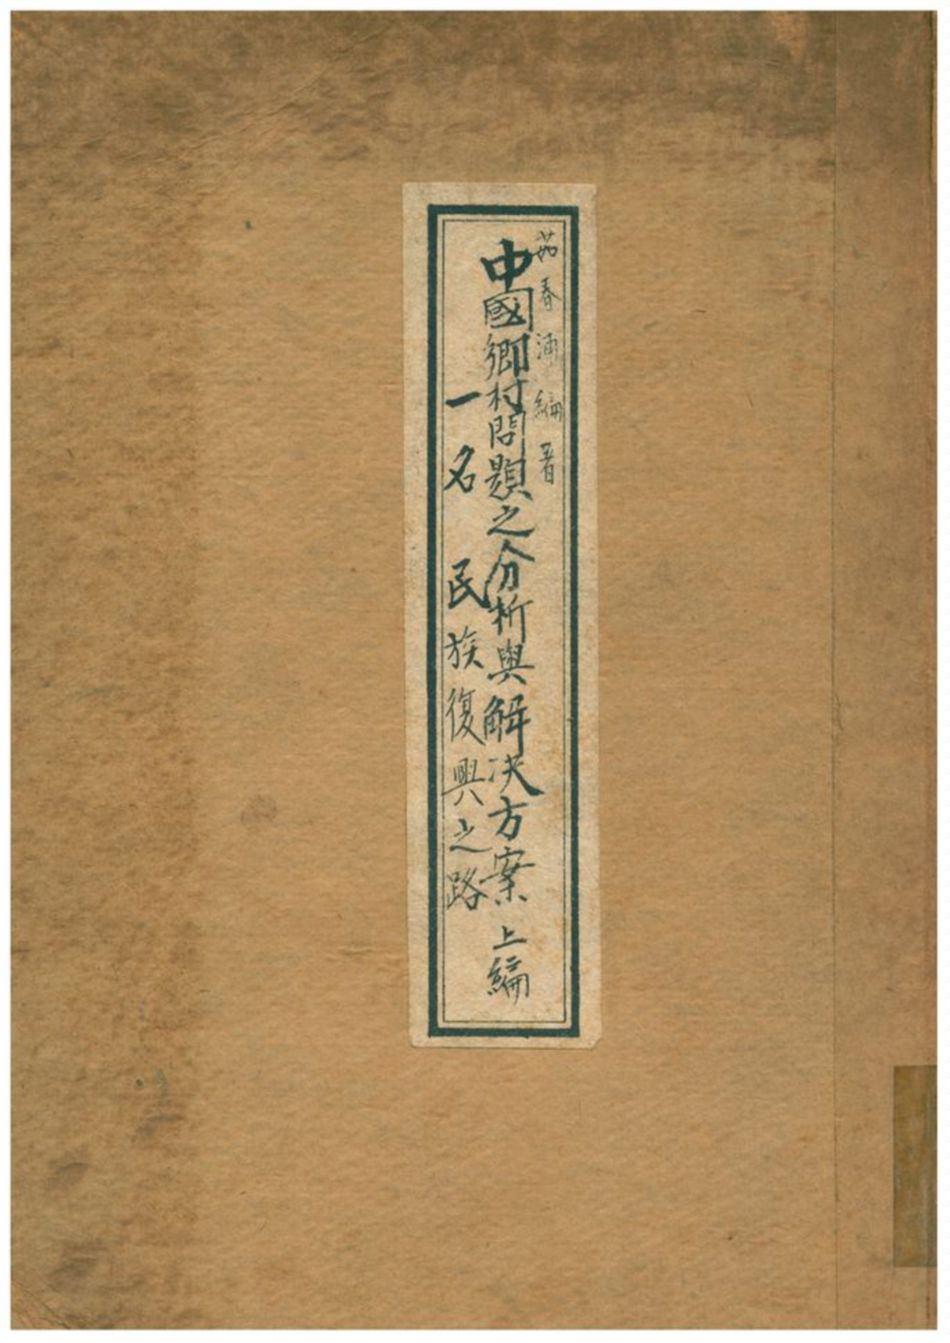 茹春浦編著
中國鄉村問題之分析與解决方案 上編
一名 民族復興之路